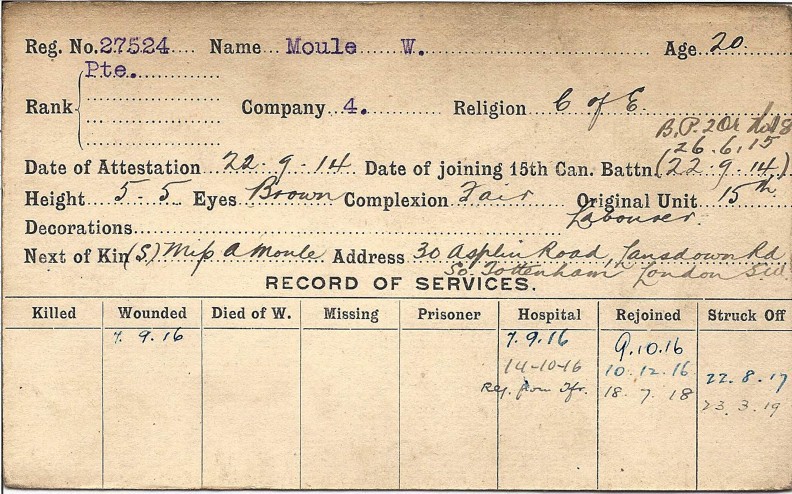 Reg. No. 27524 Name Moule W. Age 20
Pte.
Rank Company 4. Religion C of E.
B.P.2 Or
26.6.15
Date of Attestation 22.9.14 Date of joining 15th Can. Battn. (22.9.14)
Height 5-5 Eyes Brown Complexion Fair Original Unit 15th
Decorations Labourer.
Next of Kin (S) Miss A Moule Address 30 Asplin Road, Lansdown Rd
So. Tottenham London
RECORD OF SERVICES.
Killed Wounded Died of W. Missing Prisoner Hospital Rejoined Struck Off
7.9.16 7.9.16 9.10.16
14-10-16 10.12.16 22.8.17
from 18.7.18 23.3.19